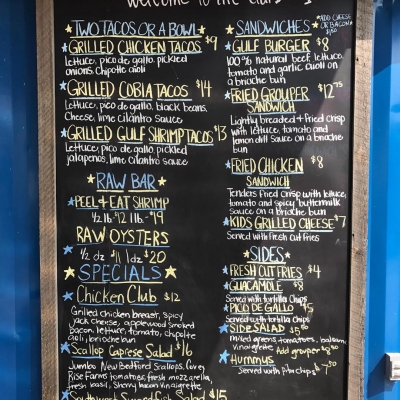 welcome to the
TWO TACOS OR A BOWL
GRILLED CHICKEN TACOS $9
lettuce, pico de gallo, pickled
onions, chipotle aioli
GRILLED COBIA TACOS $14
Lettuce, pico de gallo, black beans,
Cheese, lime cilantro sauce
GRILLED GULF SHRIMP TACOS $13
lettuce, pico de gallo, pickled
jalapenos, lime cilantro sauce
RAW BAR
PEEL + EAT SHRIMP
1/2 lb $12 1 lb - $19
RAW OYSTERS
1/2 dz $11 1dz $20
SPECIALS
Chicken Club $12
Grilled chicken breast, spicy
jack cheese, applewood smoked
bacon, lettuce, tomato, chipotle
aioli, brioche bun
Scallop Caprese Salad $16
Jumbo New Bedford Scallops, Covey
Rise Farms tomatoes, fresh mozzarella,
fresh basil, Sherry bacon vinaigrette
Southwest Swordfish Salad $15
SANDWICHES
ADD CHEESE
OR BACON
GULF BURGER $8
100% natural beef, lettuce,
tomato and garlic aioli on
a brioche bun
FRIED GROUPER $12.75
SANDWICH
Lightly breaded + fried crisp
with lettuce, tomato and
lemon dill sauce on a brioche
bun
FRIED CHICKEN $8
SANDWICH
Tenders fried crisp with lettuce,
tomato and spicy buttermilk
sauce on a brioche bun
KIDS GRILLED CHEESE $7
Served with fresh cut fries
SIDES
FRESH CUT FRIES $4
GUACAMOLE $8
Served with tortilla chips
PICO DE GALLO $5
Served with tortilla chips
SIDE SALAD $5.50
mixed greens, tomatoes, balsamic
vinaigrette Add grouper $8.50
HUMMUS
Served with pita chips $7.50